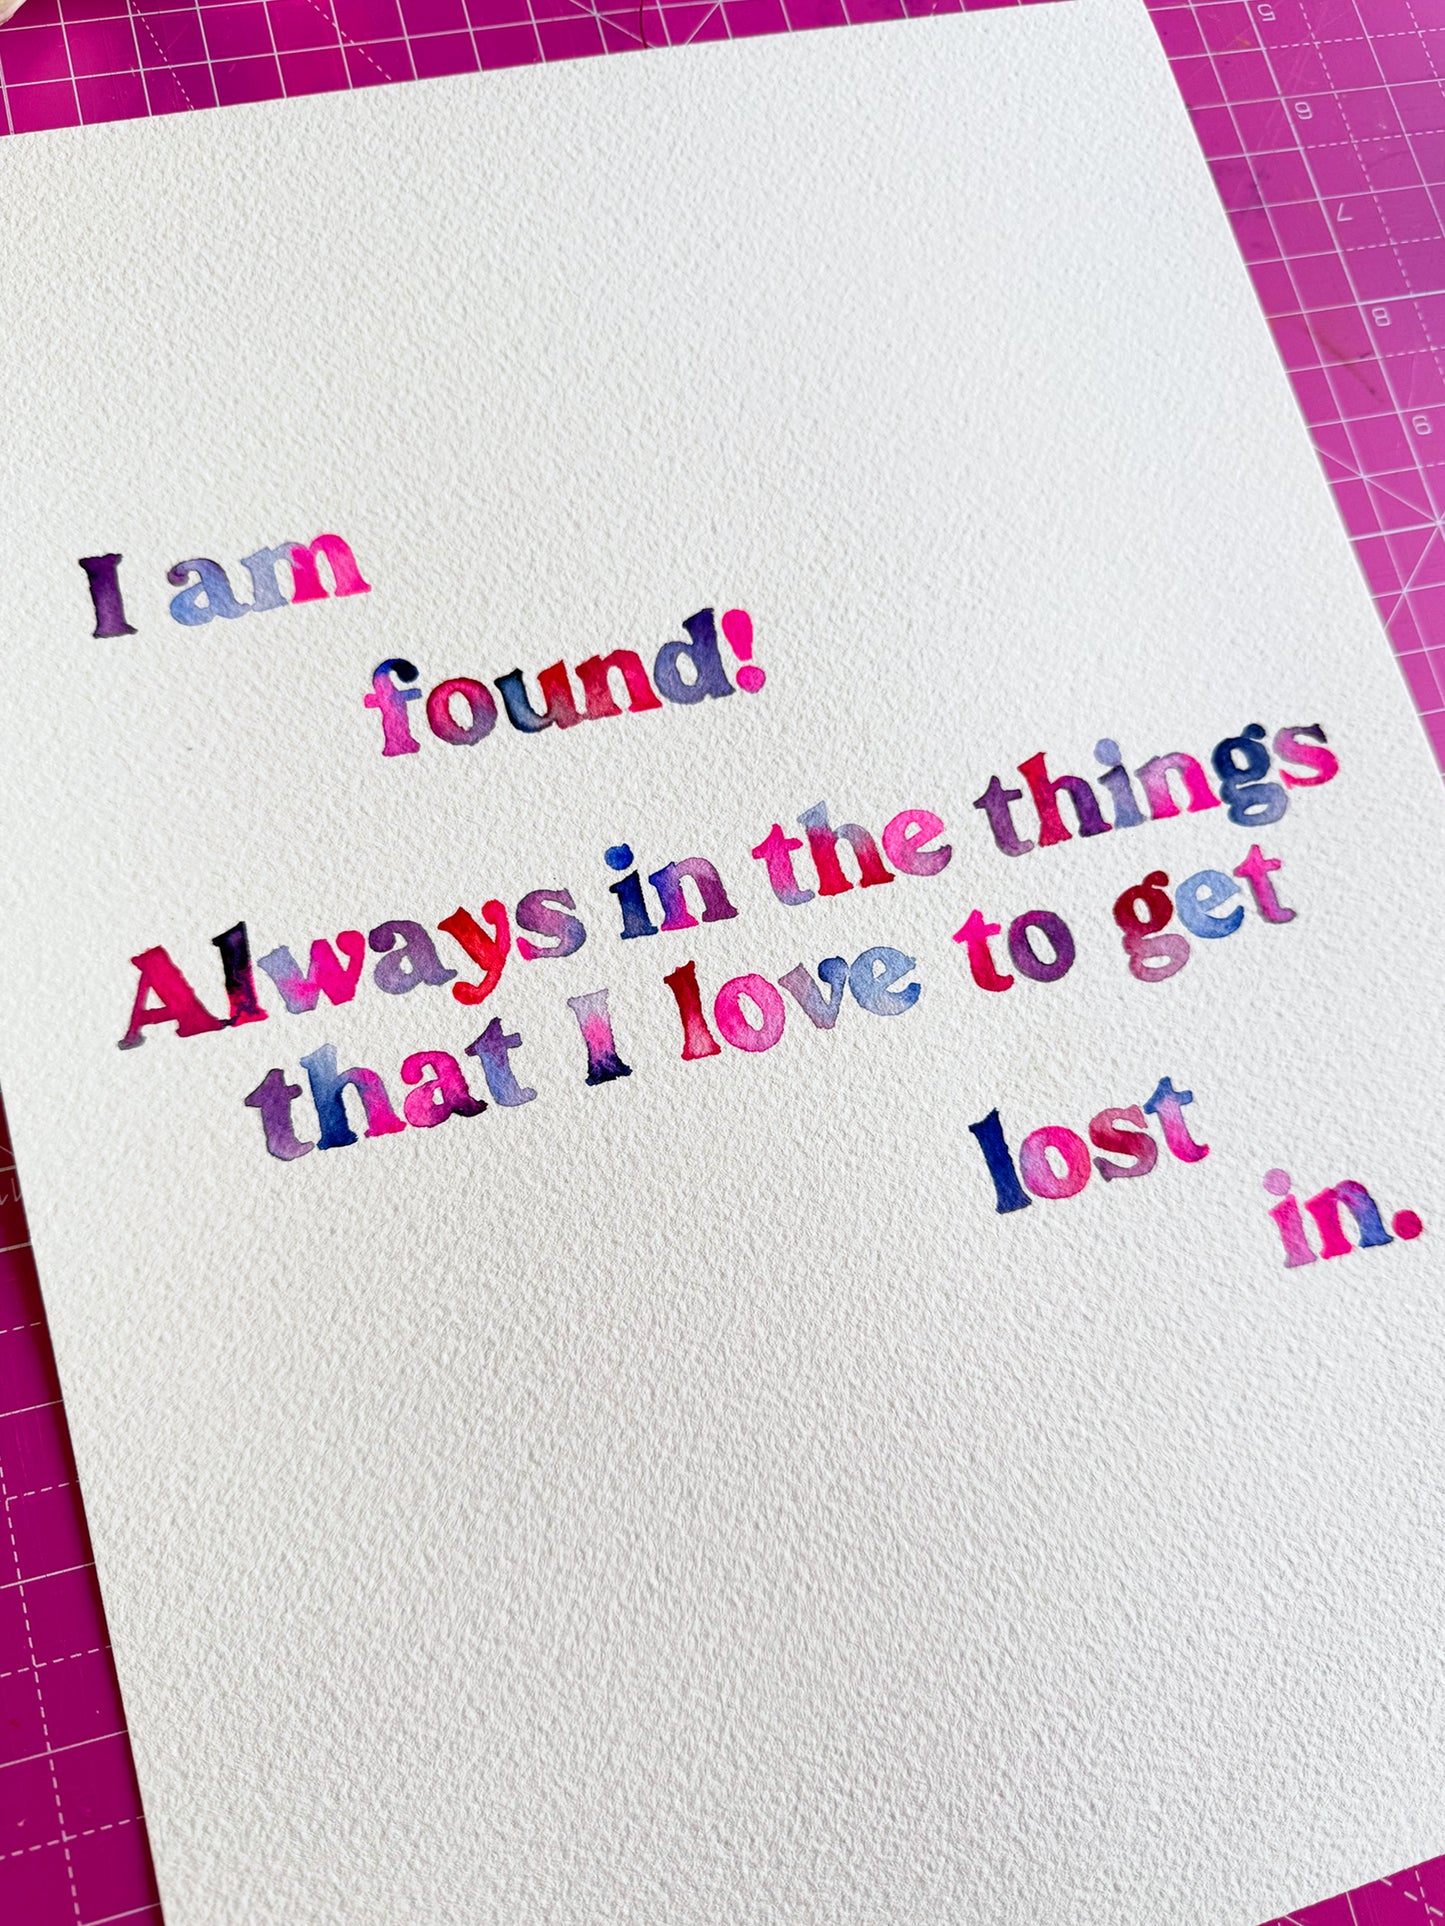 I am
found!
Always in the things
that I love to get
lost
in.
5
6
7
8
9
11